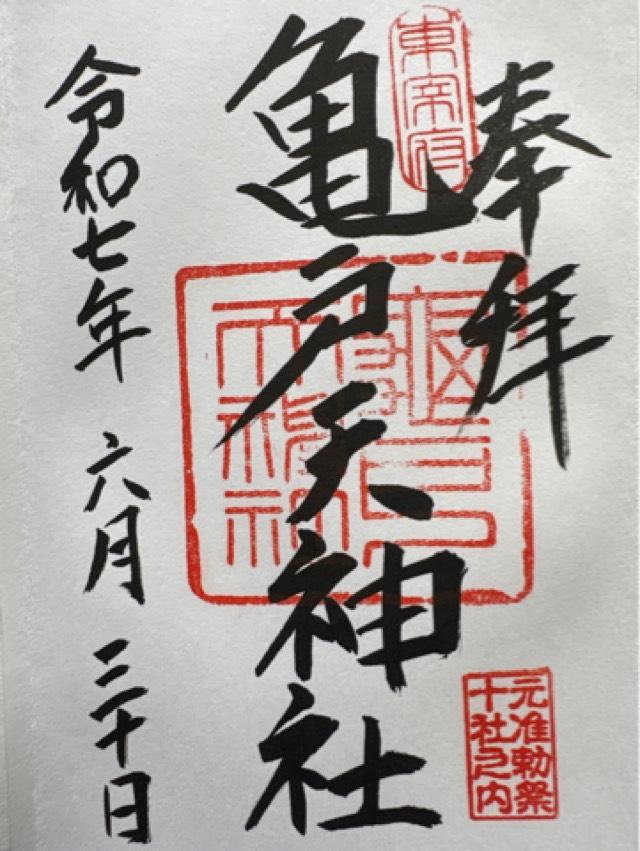 奉拝
東宰府
亀戸天神社
元准勅祭
十社之内
令和七年 六月 三十日